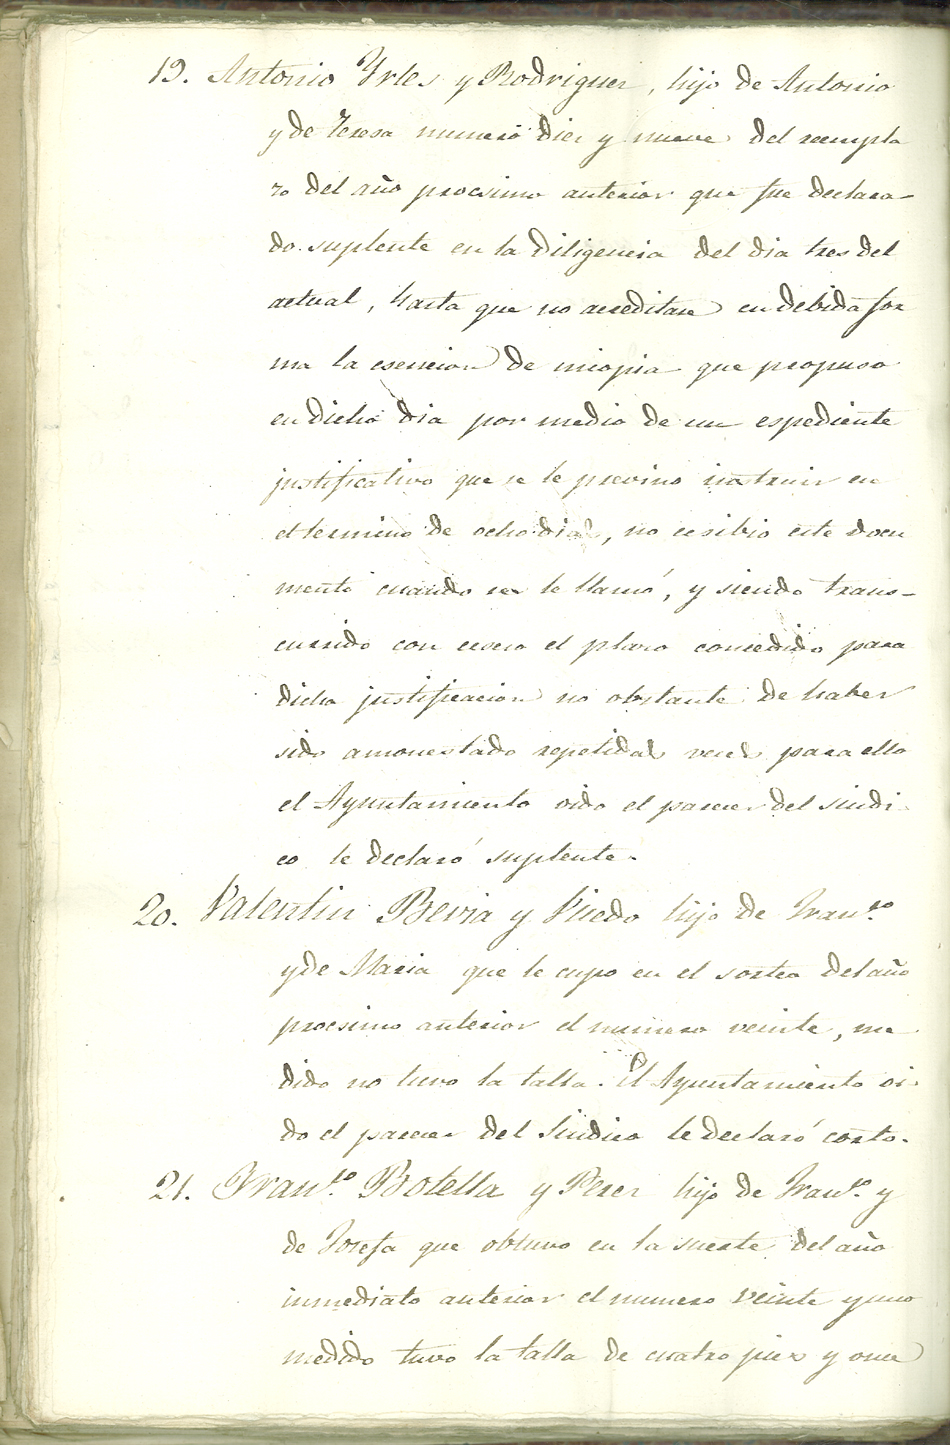 19. Antonio Yrles y Rodriguez, hijo de Antonio
y de Teresa numero diez y nueve del reempla
zo del año procsimo anterior que fue declara-
do suplente en la diligencia del dia tres del
actual, hasta que no acreditase en debida for
ma la esencion de miopia que propuso
en dicho dia por medio de un espediente
justificativo que se le previno instruir en
el termino de ocho dias, no ecsibio este docu
mento cuando se le llamó, y siendo trans-
currido con eceso el plazo concedido para
dicha justificacion no obstante de haber
sido amonestado repetidas veces para ello
el Ayuntamiento oido el parecer del sindi
co le declaró suplente.
20. Valentin Bevia y Pueda hijo de Fran.co
y de Maria que le cupo en el sorteo del año
procsimo anterior el numero veinte, me
dido no tuvo la talla. El Ayuntamiento oi-
do el parecer del Sindico le declaró corto.
21. Fran.co Botella y Perez hijo de Fran.co y
de Josefa que obtuvo en la suerte del año
inmediato anterior el numero veinte y uno
medido tuvo la talla de cuatro pies y once